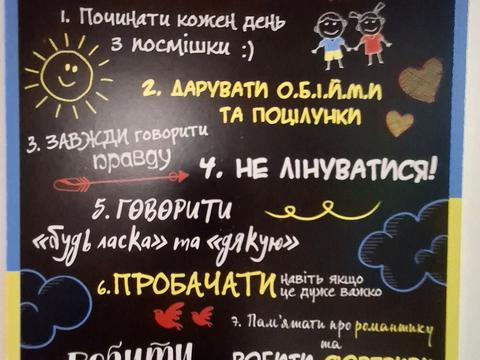 1. Починати кожен день
з посмішки :)
2. ДАРУВАТИ О.Б.І.Й.М.И
ТА ПОЦІЛУНКИ
3. ЗАВЖДИ говорити
правду
4. НЕ ЛІНУВАТИСЯ!
5. ГОВОРИТИ
«будь ласка» та «дякую»
6. ПРОБАЧАТИ навіть якщо
це дуже важко
7. Пам'ятати про романтику
та
РОБИТИ